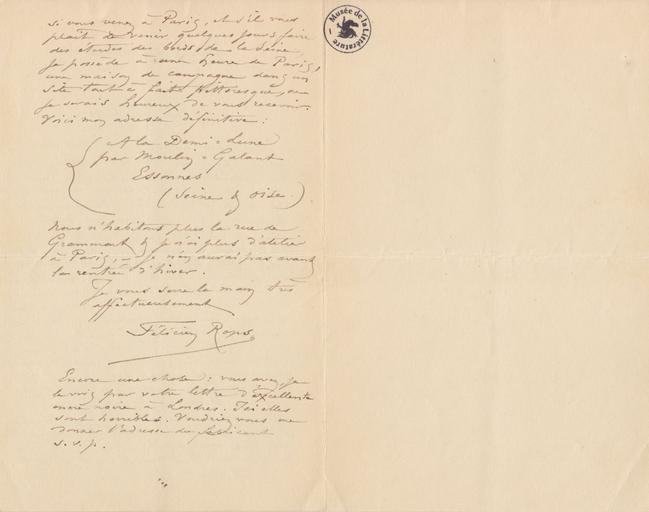 si vous venez à Paris, & s'il vous
plait de venir quelques jours faire
des études des bords de la Seine,
je possède à une heure de Paris,
une maison de campagne dans un
site tout à fait pittoresque, ou
je serais heureux de vous recevoir.
Voici mon adresse définitive :
A la Demi-Lune
par Moulin-Galant
Essonnes
(Seine & Oise.)
Nous n'habitons plus la rue de
Grammont & je n'ai plus d'atelier
à Paris, – je n'en aurai pas avant
la rentrée d'hiver.
Je vous serre la main très
affectueusement
Félicien Rops
Encore une chose : vous avez, je
le vois par votre lettre d'excellente
encre noire à Londres. Ici elles
sont horribles. Voudriez vous me
donner l'adresse du fabricant
s.v.p.
Musée de la Littérature